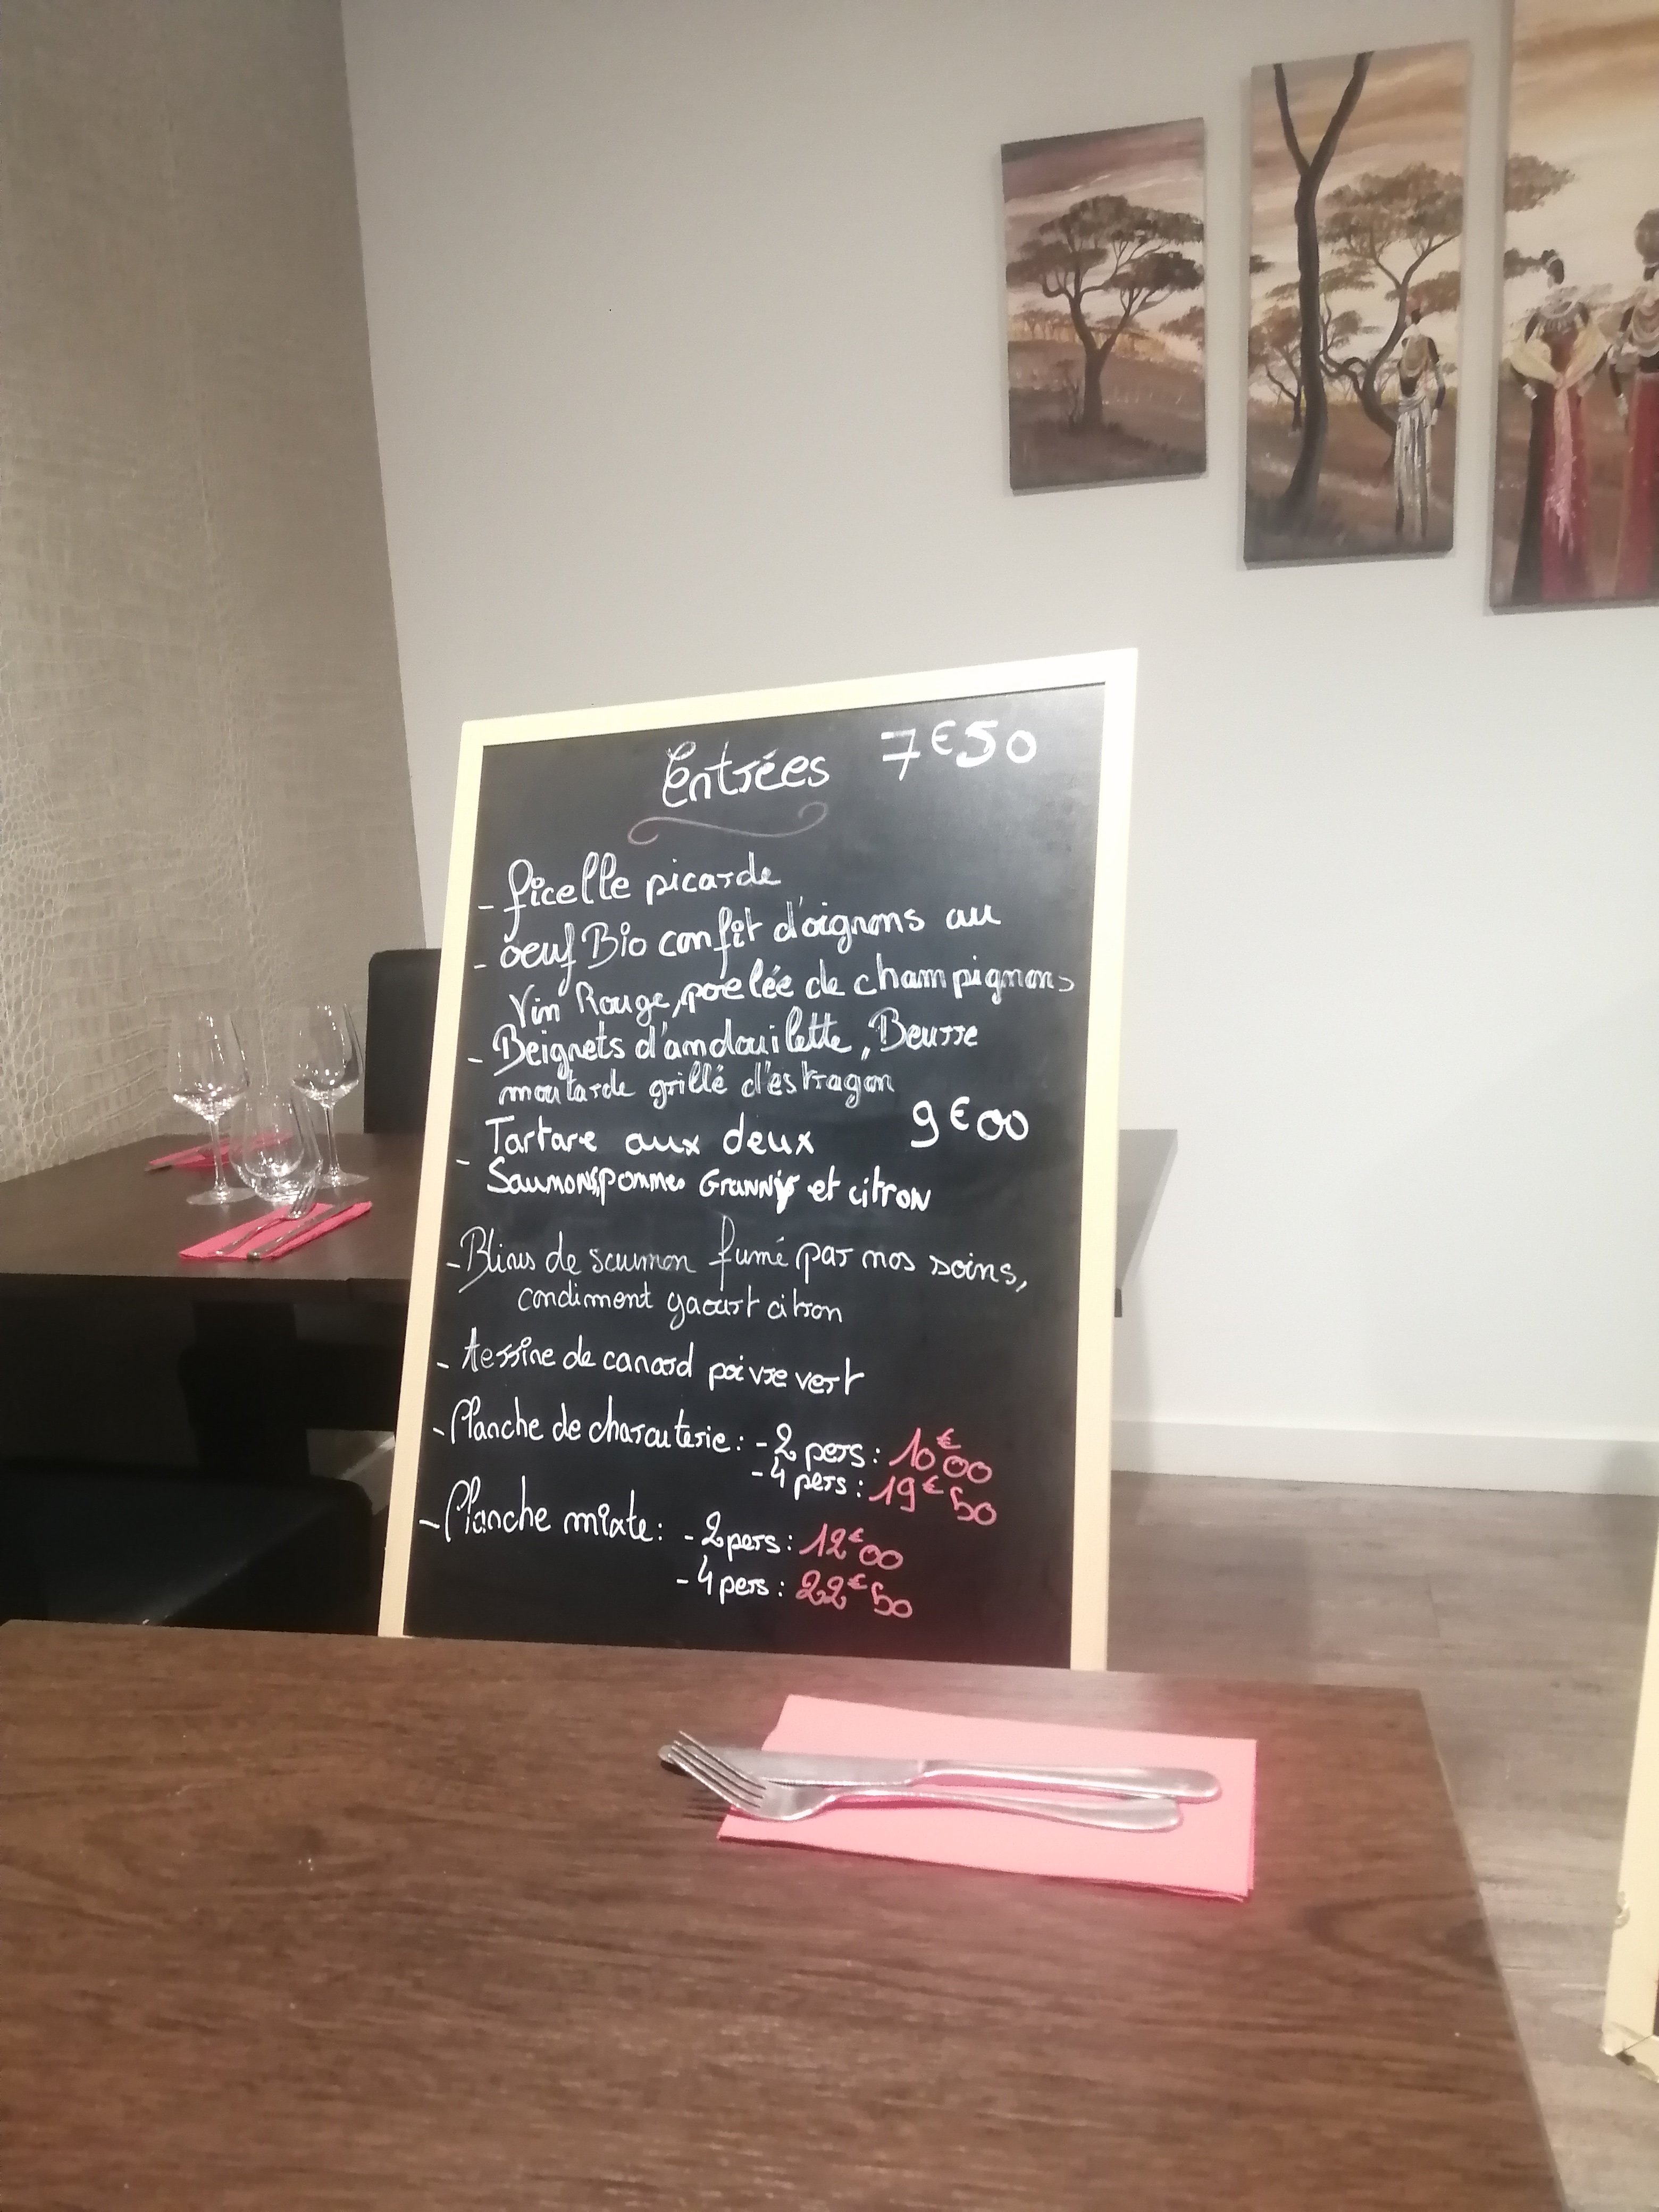 Entrées 7€50
- ficelle picarde
- oeuf Bio confit d'oignons au
Vin Rouge, poelée de champignons
- Beignets d'andouilette, Beurre
moutarde grillé d'estragon
- Tartare aux deux 9€00
Saumons, pommes Granny et citron
- Blinis de saumon fumé par nos soins,
condiment yaourt citron
- terrine de canard poivre vert
- Planche de charcuterie : - 2 pers : 10€00
- 4 pers : 19€50
- Planche mixte : - 2 pers : 12€00
- 4 pers : 22€50